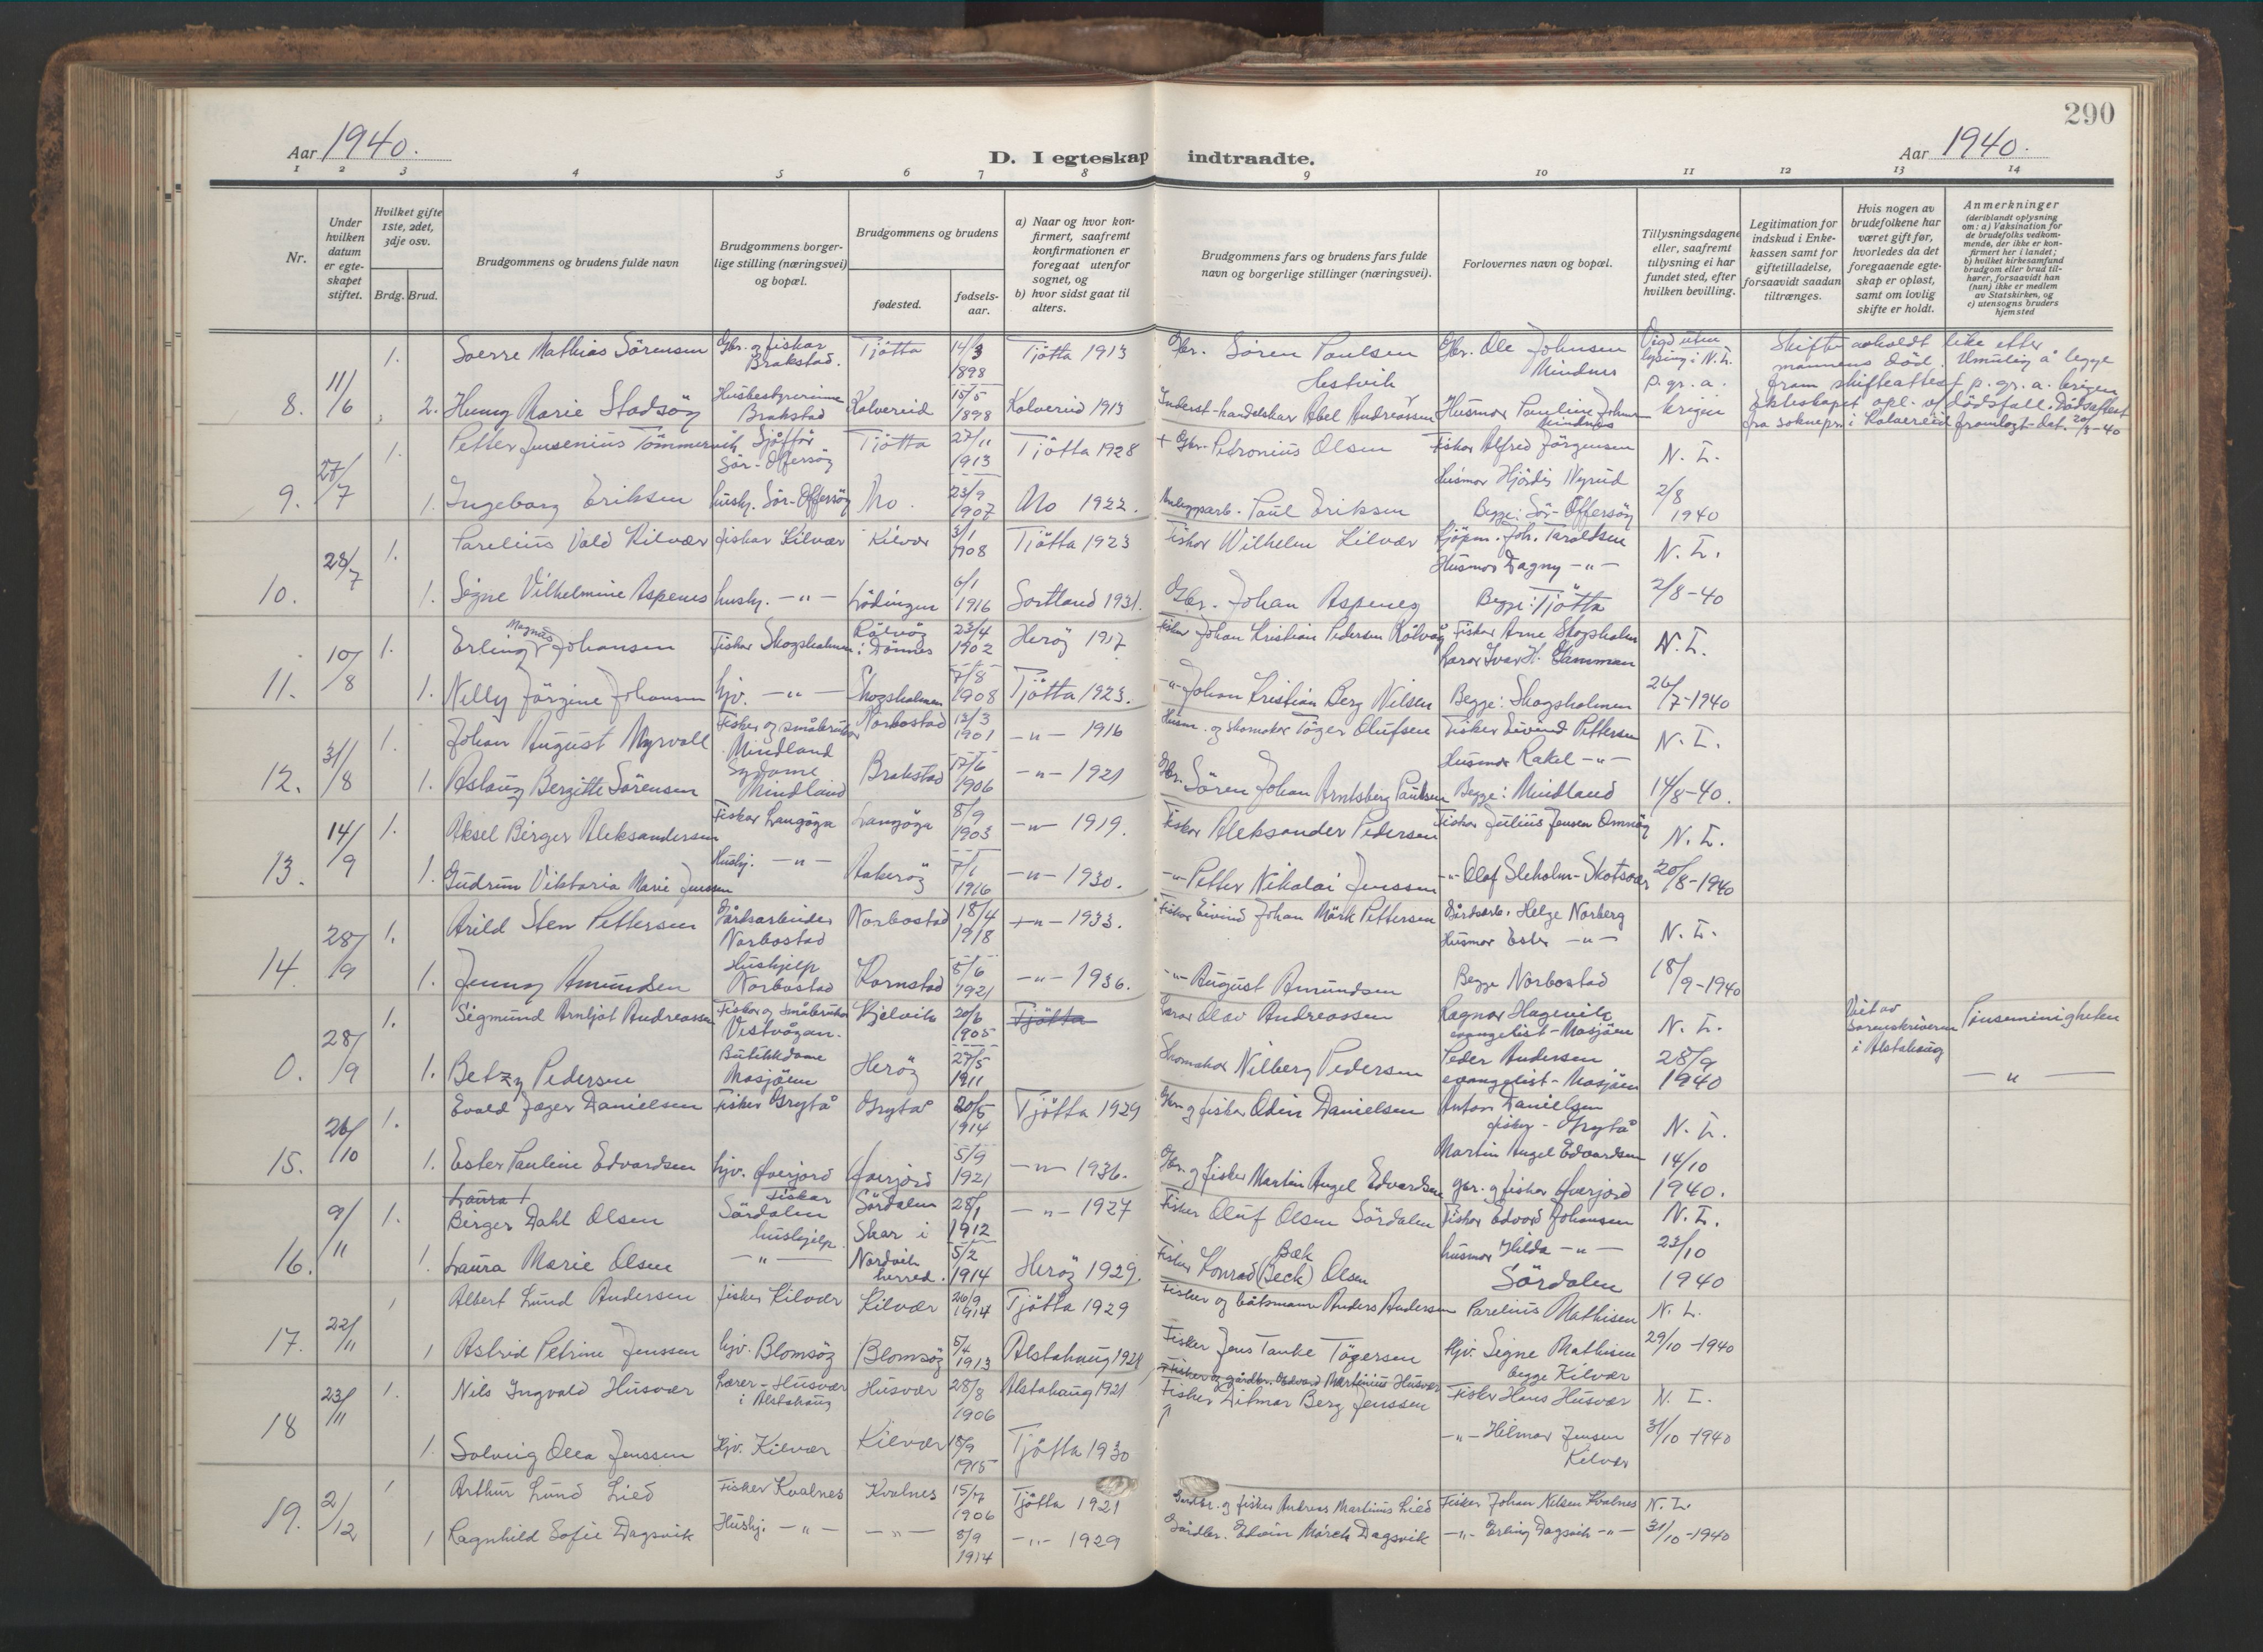 290
Aar 1940.
D. I egteskap indtraadte.
Aar 1940.
1 2 3 4 5 6 7 8 9 10 11 12 13 14
Nr.
Under hvilken datum er egteskapet stiftet.
Hvilket gifte 1ste, 2det, 3dje osv.
Brdg. Brud.
Brudgommens og brudens fulde navn
Brudgommens borgerlige stilling (næringsvei) og bopæl.
Brudgommens og brudens
fødested.
fødselsaar.
a) Naar og hvor konfirmert, saafremt konfirmationen er foregaat utenfor sognet, og
b) hvor sidst gaat til alters.
Brudgommens fars og brudens fars fulde navn og borgerlige stillinger (næringsvei).
Forlovernes navn og bopæl.
Tillysningsdagene eller, saafremt tillysning ei har fundet sted, efter hvilken bevilling.
Legitimation for indskud i Enkekassen samt for giftetilladelse, forsaavidt saadan tiltrænges.
Hvis nogen av brudefolkene har været gift før, hvorledes da det foregaaende egteskap er opløst, samt om lovlig skifte er holdt.
Anmerkninger
(deriblandt oplysning om: a) Vaksination for de brudefolks vedkommende, der ikke er konfirmert her i landet;
b) hvilket kirkesamfund brudgom eller brud tilhører, forsaavidt han (hun) ikke er medlem av Statskirken, og
c) utensogns bruders hjemsted
1. Sverre Mathias Sörensen Gbr. og fiskar Brakstad. Tjötta 14/3 1898 Tjötta 1913 Gbr. Sören Paulsen Hestvik Gbr. Ole Johnsen Mindnes Vigd uten lysing i N.L. p.gr.a. krigen
8. 11/6 2. Hunny Marie Stadsöy Husbestyrerinne Brakstad Kolvereid 15/5 1898 Kolvereid 1913 Abel Andreassen Husmor Pauline Johns. Mindnes
Skifte avholdt like etter mannens död. Umulig å legge fram skifteattest p.gr.a. krigen Ekteskapet opl. v/dödsfall. Dödsattest fra soknepr. i Kolvereid framlagt dat. 20/3-40
9. 27/7 1. Petter Jensenius Tömmervik Sjåfför Sör-Offersöy Tjötta 27/11 1913 Tjötta 1928 + Gbr. Petronius Olsen Fiskar Alfred Jörgensen N. L.
1. Ingeborg Eriksen hushj. Sör-Offersöy Mo 23/9 1907 Mo 1922. Anleggsarb. Paul Eriksen Husmor Hjördis Nyrud Begge: Sör-Offersöy 2/8 1940
10. 28/7 1. Parelius Vold Kilvær fiskar Kilvær Kilvær 3/1 1908 Tjötta 1923 Fiskar Wilhelm Kilvær Kjöpm. Joh. Taraldsen N. L.
1. Signe Vilhelmine Aspenes hushj. -"- Lödingen 6/1 1916 Sortland 1931. Gbr. Johan Aspenes Husmor Dagny -"- Begge: Tjötta 2/8-40
11. 10/8 1. Erling Magnus Johansen Fiskar Skogsholmen Rölvåg i Dönnes 23/4 1902 Heröy 1917 Fiskar Johan Kristian Pedersen Rölvåg Fiskar Arne Skogsholm N. L.
1. Nelly Jörgine Johansen hjv. -"- Skogsholmen 7/8 1908 Tjötta 1923. -"- Johan Kristian Berg Nilsen Lærer Ivar H. Gamman Begge: Skogsholmen 26/7-1940
12. 31/8 1. Johan August Myrvoll Fisker og småbruker Mindland Norbostad 13/3 1901 -"- 1916 Husm. og skomaker Töger Olufsen Fisker Eivind Pettersen N. L.
1. Aslaug Bergitte Sörensen Sydame Mindland Brakstad 17/6 1906 -"- 1921 Gbr. Sören Johan Arntsberg Paulsen Husmor Rakel -"- Begge: Mindland 14/8-40.
13. 14/9 1. Aksel Birger Aleksandersen Fiskar Langöya Langöya 8/9 1903 -"- 1919. Fiskar Aleksander Pedersen Fiskar Julius Jensen Omnöy N. L.
1. Gudrun Viktoria Marie Jenssen Hushj. -"- Aakeröy 7/1 1916 -"- 1930. -"- Petter Nikolai Jenssen -"- Olaf Sleholm-Skotsvær 20/8-1940
14. 28/9 1. Arild Sten Pettersen Gårdsarbeider Norbostad Norbostad 18/4 1918 -"- 1933. Fisker Eivind Johan Mörk Pettersen Gårdsarb. Helge Norberg N. L.
1. Jenny Amundsen Hushjelp Norbostad Kornstad 8/6 1921 -"- 1936. -"- August Amundsen Husmor Ester -"- Begge Norbostad 18/9-1940
0. 28/9 1. Sigmund Arntjot Andreassen Fisker og småbruker Vistvågan. Kjelvik 20/6 1905 Tjötta Lærer Olav Andreassen Ragnar Hagevik evangelist-Mosjöen N. L. Viet av Sorenskriveren i Alstahaug Pinsemenigheten
1. Betzy Pedersen Butikkdame Mosjöen Heröy 27/5 1911 Skomaker Nilberg Pedersen Peder Andersen evangelist-Mosjöen 28/9 1940 -"-
15. 26/10 1. Evald Jæger Danielsen Fisker Grytå Grytå 20/5 1914 Tjötta 1929 Gbr. og fisker Odin Danielsen Anton Danielsen fisker - Grytå N. L.
1. Ester Pauline Edvardsen hjv. Överjord Överjord 5/9 1921 -"- 1936. Gbr. og fisker Martin Angel Edvardsen Martin Angel Edvardsen gbr. og fisker Överjord 14/10 1940.
16. 9/11 1. Laura Birger Dahl Olsen Fiskar Sördalen Sördalen 28/1 1912 -"- 1927 Fisker Oluf Olsen Sördalen Fisker Edvard Johansen N. L.
1. Laura Marie Olsen hushjelp -"- Skar i Nordvik herred. 5/2 1914 Heröy 1929. Fisker Konrad Bæk (Beck) Olsen husmor Hilda -"- Sördalen 23/10 1940
17. 22/11 1 Albert Lund Andersen fisker Kilvær Kilvær 26/9 1914 Tjötta 1929 Fisker og båtsmann Anders Andersen Parelius Mathisen N. L.
1 Astrid Petrine Jenssen hjv. Blomsöy Blomsöy 5/4 1913 Alstahaug 1928 Fisker Jens Tanke Tögersen Hjv. Signe Mathisen begge Kilvær 29/10-1940
18 23/11 1. Nils Ingvald Husvær Lærer-Husvær i Alstahaug Husvær 28/8 1906 Alstahaug 1921 Fisker og gårdbr. Edvard Martinius Husvær Fisker Hans Husvær N. L.
1. Solveig Olea Jenssen Hjv. Kilvær Kilvær 18/9 1915 Tjötta 1930 Fisker Ditmar Berg Jenssen -"- Hilmar Jensen Kilvær 31/10-1940
19. 2/12 1 Arthur Lund Lied Fisker Kvalnes Kvalnes 15/7 1906 Tjötta 1921 Gårdbr. og fisker Andreas Martinius Lied Fisker Johan Nilsen Kvalnes N. L.
1 Ragnhild Sofie Dagsvik Hushj. -"- -"- 8/9 1914 -"- 1929 Gårdbr. Edvin Mörch Dagsvik -"- Erling Dagsvik -"- 31/10-1940